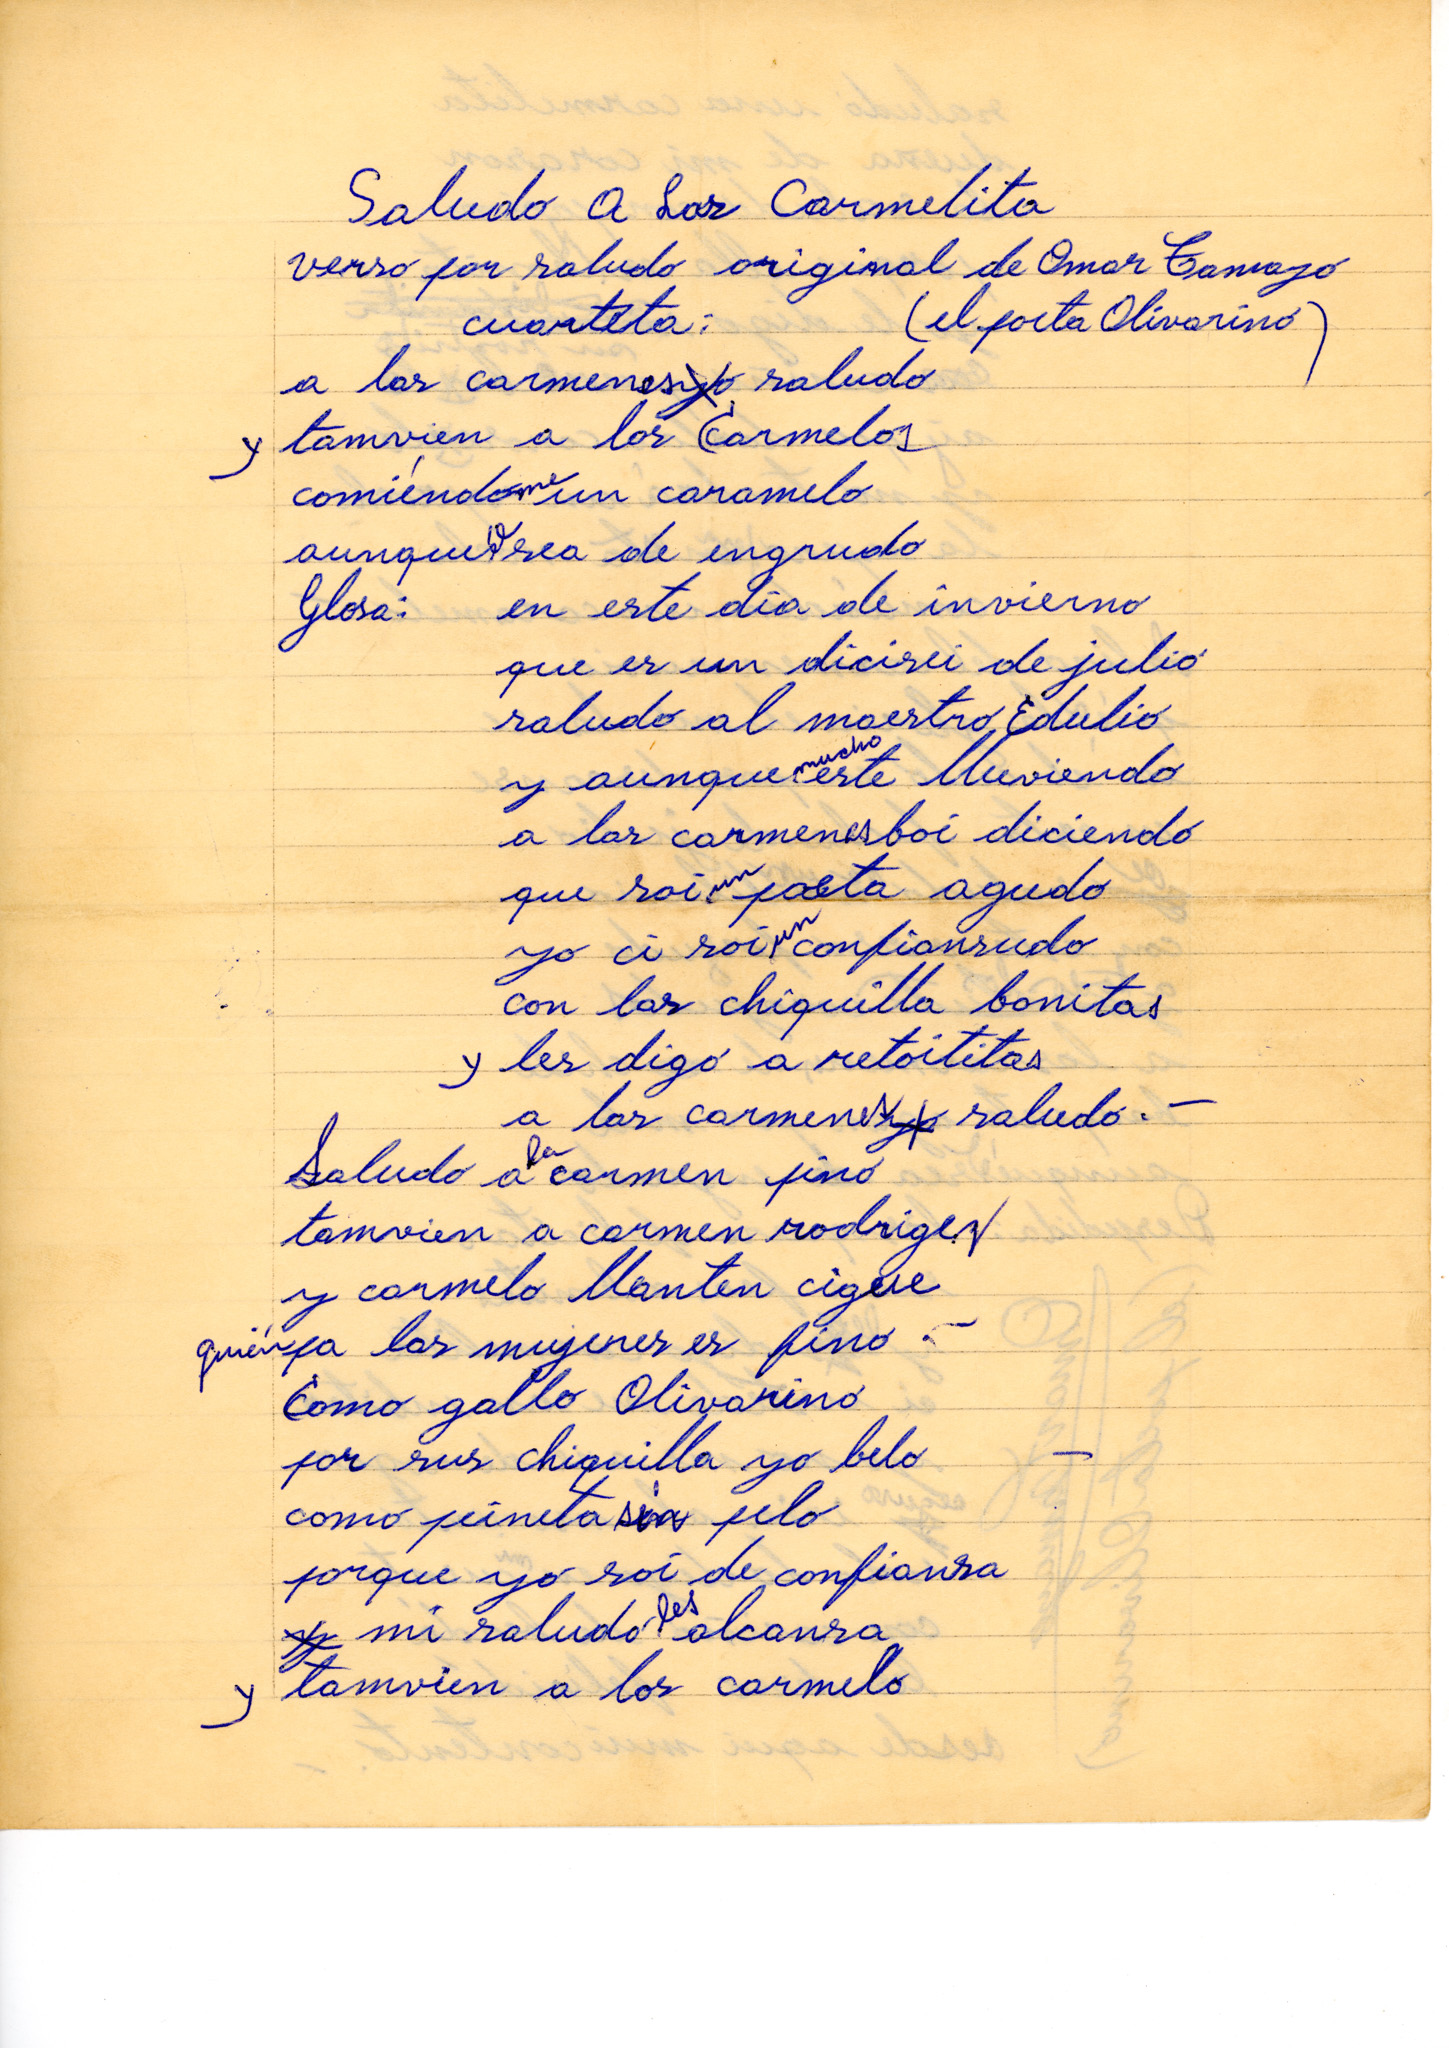 Saludo A Las Carmelita
verso por saludo original de Omar Tamayo
cuarteta: (el poeta Olivarino)
a las carmenes yo saludo
y tamvien a los Carmelos
comiéndome un caramelo
aunque sea de engrudo
Glosa: en este dia de invierno
que es un dicisei de julio
saludo al maestro Edulio
y aunque mucho este lluviendo
a las carmenes boi diciendo
que soi un poeta agudo
yo ci soi un confiansudo
con las chiquilla bonitas
y les digo a retoititas
a las carmenes yo saludo.-
Saludo a la carmen pino
tamvien a carmen rodrigez
y carmelo Manten cigue
quién pa las mujeres es fino.-
Como gallo Olivarino
por sus chiquilla yo belo -
como peineta sin pelo
porque yo soi de confiansa
y mi saludo les alcansa
y tamvien a los carmelo